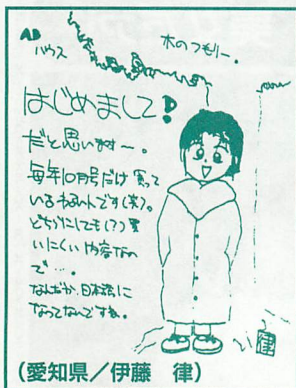 ADハウス
木のつもりー。
はじめまして!
だと思います〜。
毎年10月号だけ買って
いるわるい人です(笑)。
どちらにしても(?)買
いにくい内容なの
で…。
なんだか、日本語に
なってないですね。
律
(愛知県/伊藤 律)